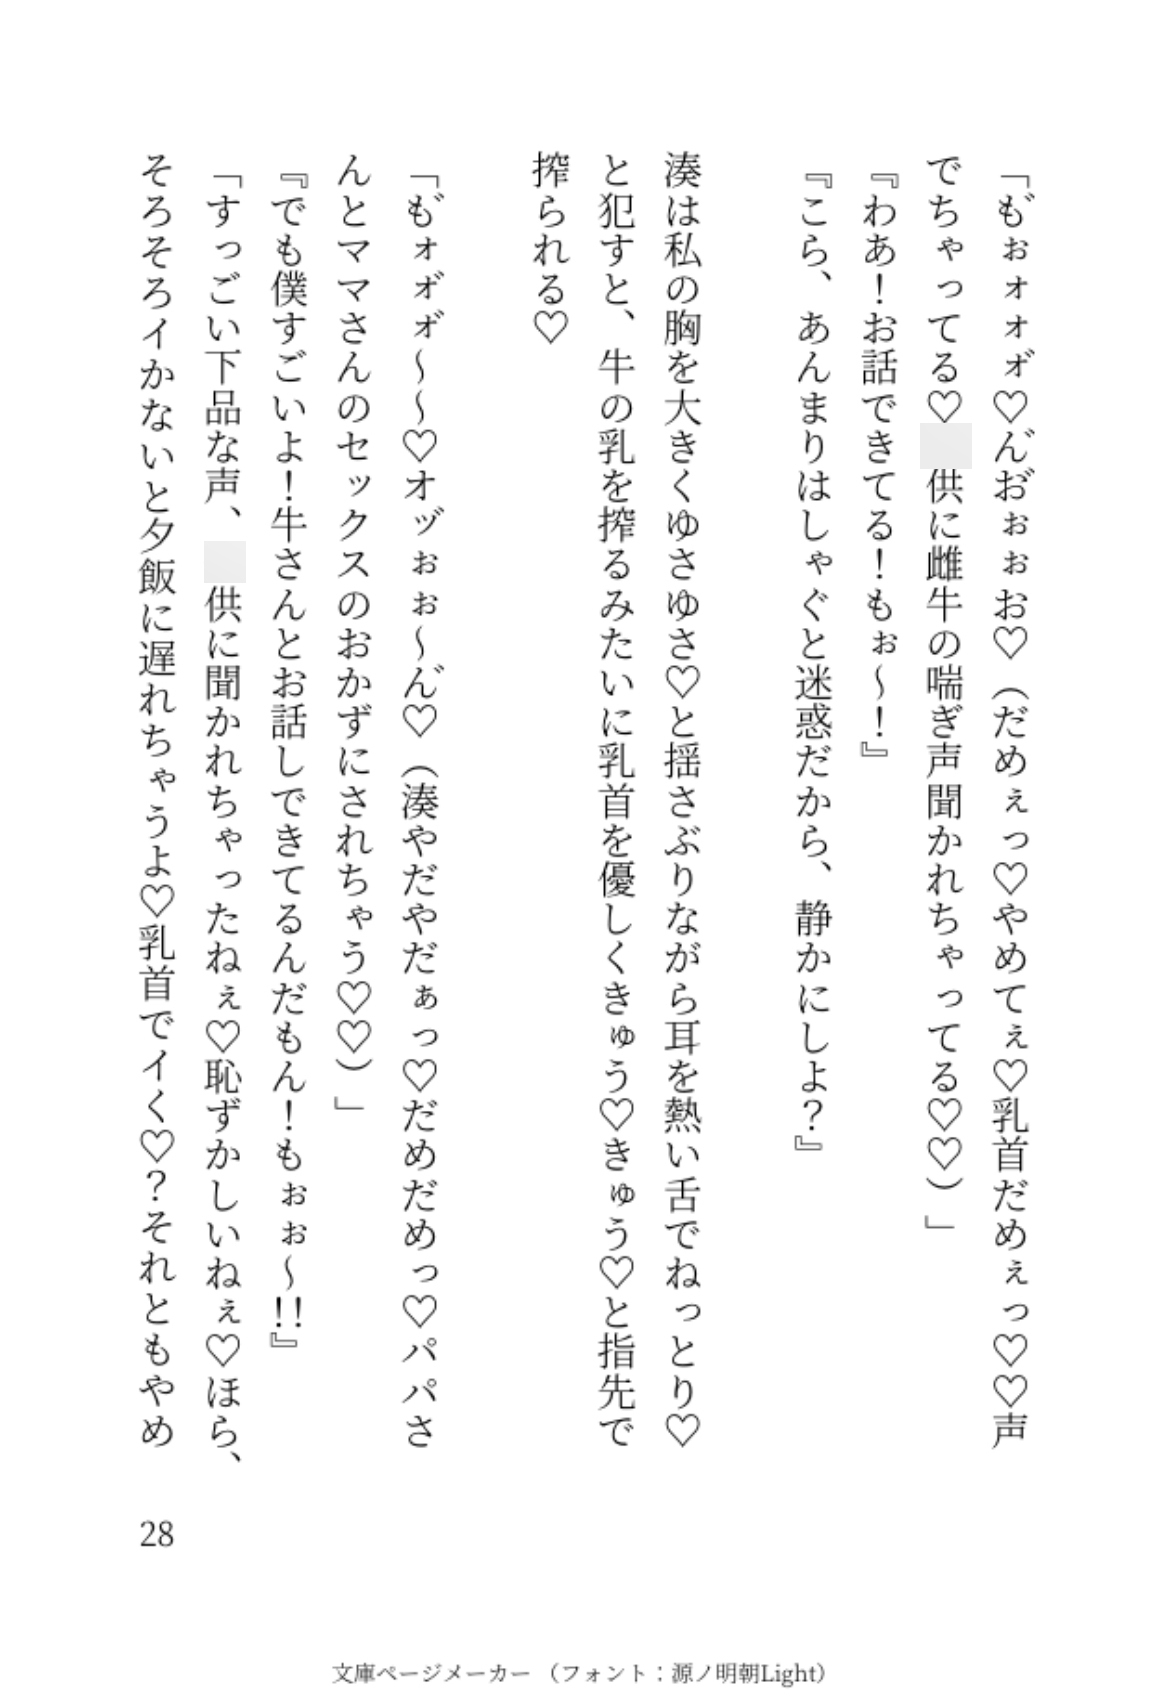 「も゛ぉォォォ゛♡ん゛お゛ぉぉお♡（だめぇっ♡やめてぇ♡乳首だめぇっ♡♡声
でちゃってる♡供に雌牛の喘ぎ声聞かれちゃってる♡♡）」
『わあ！お話できてる！もぉ～！』
『こら、あんまりはしゃぐと迷惑だから、静かにしよ？』
湊は私の胸を大きくゆさゆさ♡と揺さぶりながら耳を熱い舌でねっとり♡
と犯すと、牛の乳を搾るみたいに乳首を優しくきゅう♡きゅう♡と指先で
搾られる♡
「も゛ォォ゛ォ゛～～♡オッ゛ぉぉ～ん゛♡（湊やだやだぁっ♡だめだめっ♡パパさ
んとママさんのセックスのおかずにされちゃう♡♡）」
『でも僕すごいよ！牛さんとお話しできてるんだもん！もぉぉ～!!』
「すっごい下品な声、供に聞かれちゃったねぇ♡恥ずかしいねぇ♡ほら、
そろそろイかないと夕飯に遅れちゃうよ♡乳首でイく♡？それともやめ
28
文庫ページメーカー（フォント：源ノ明朝Light）